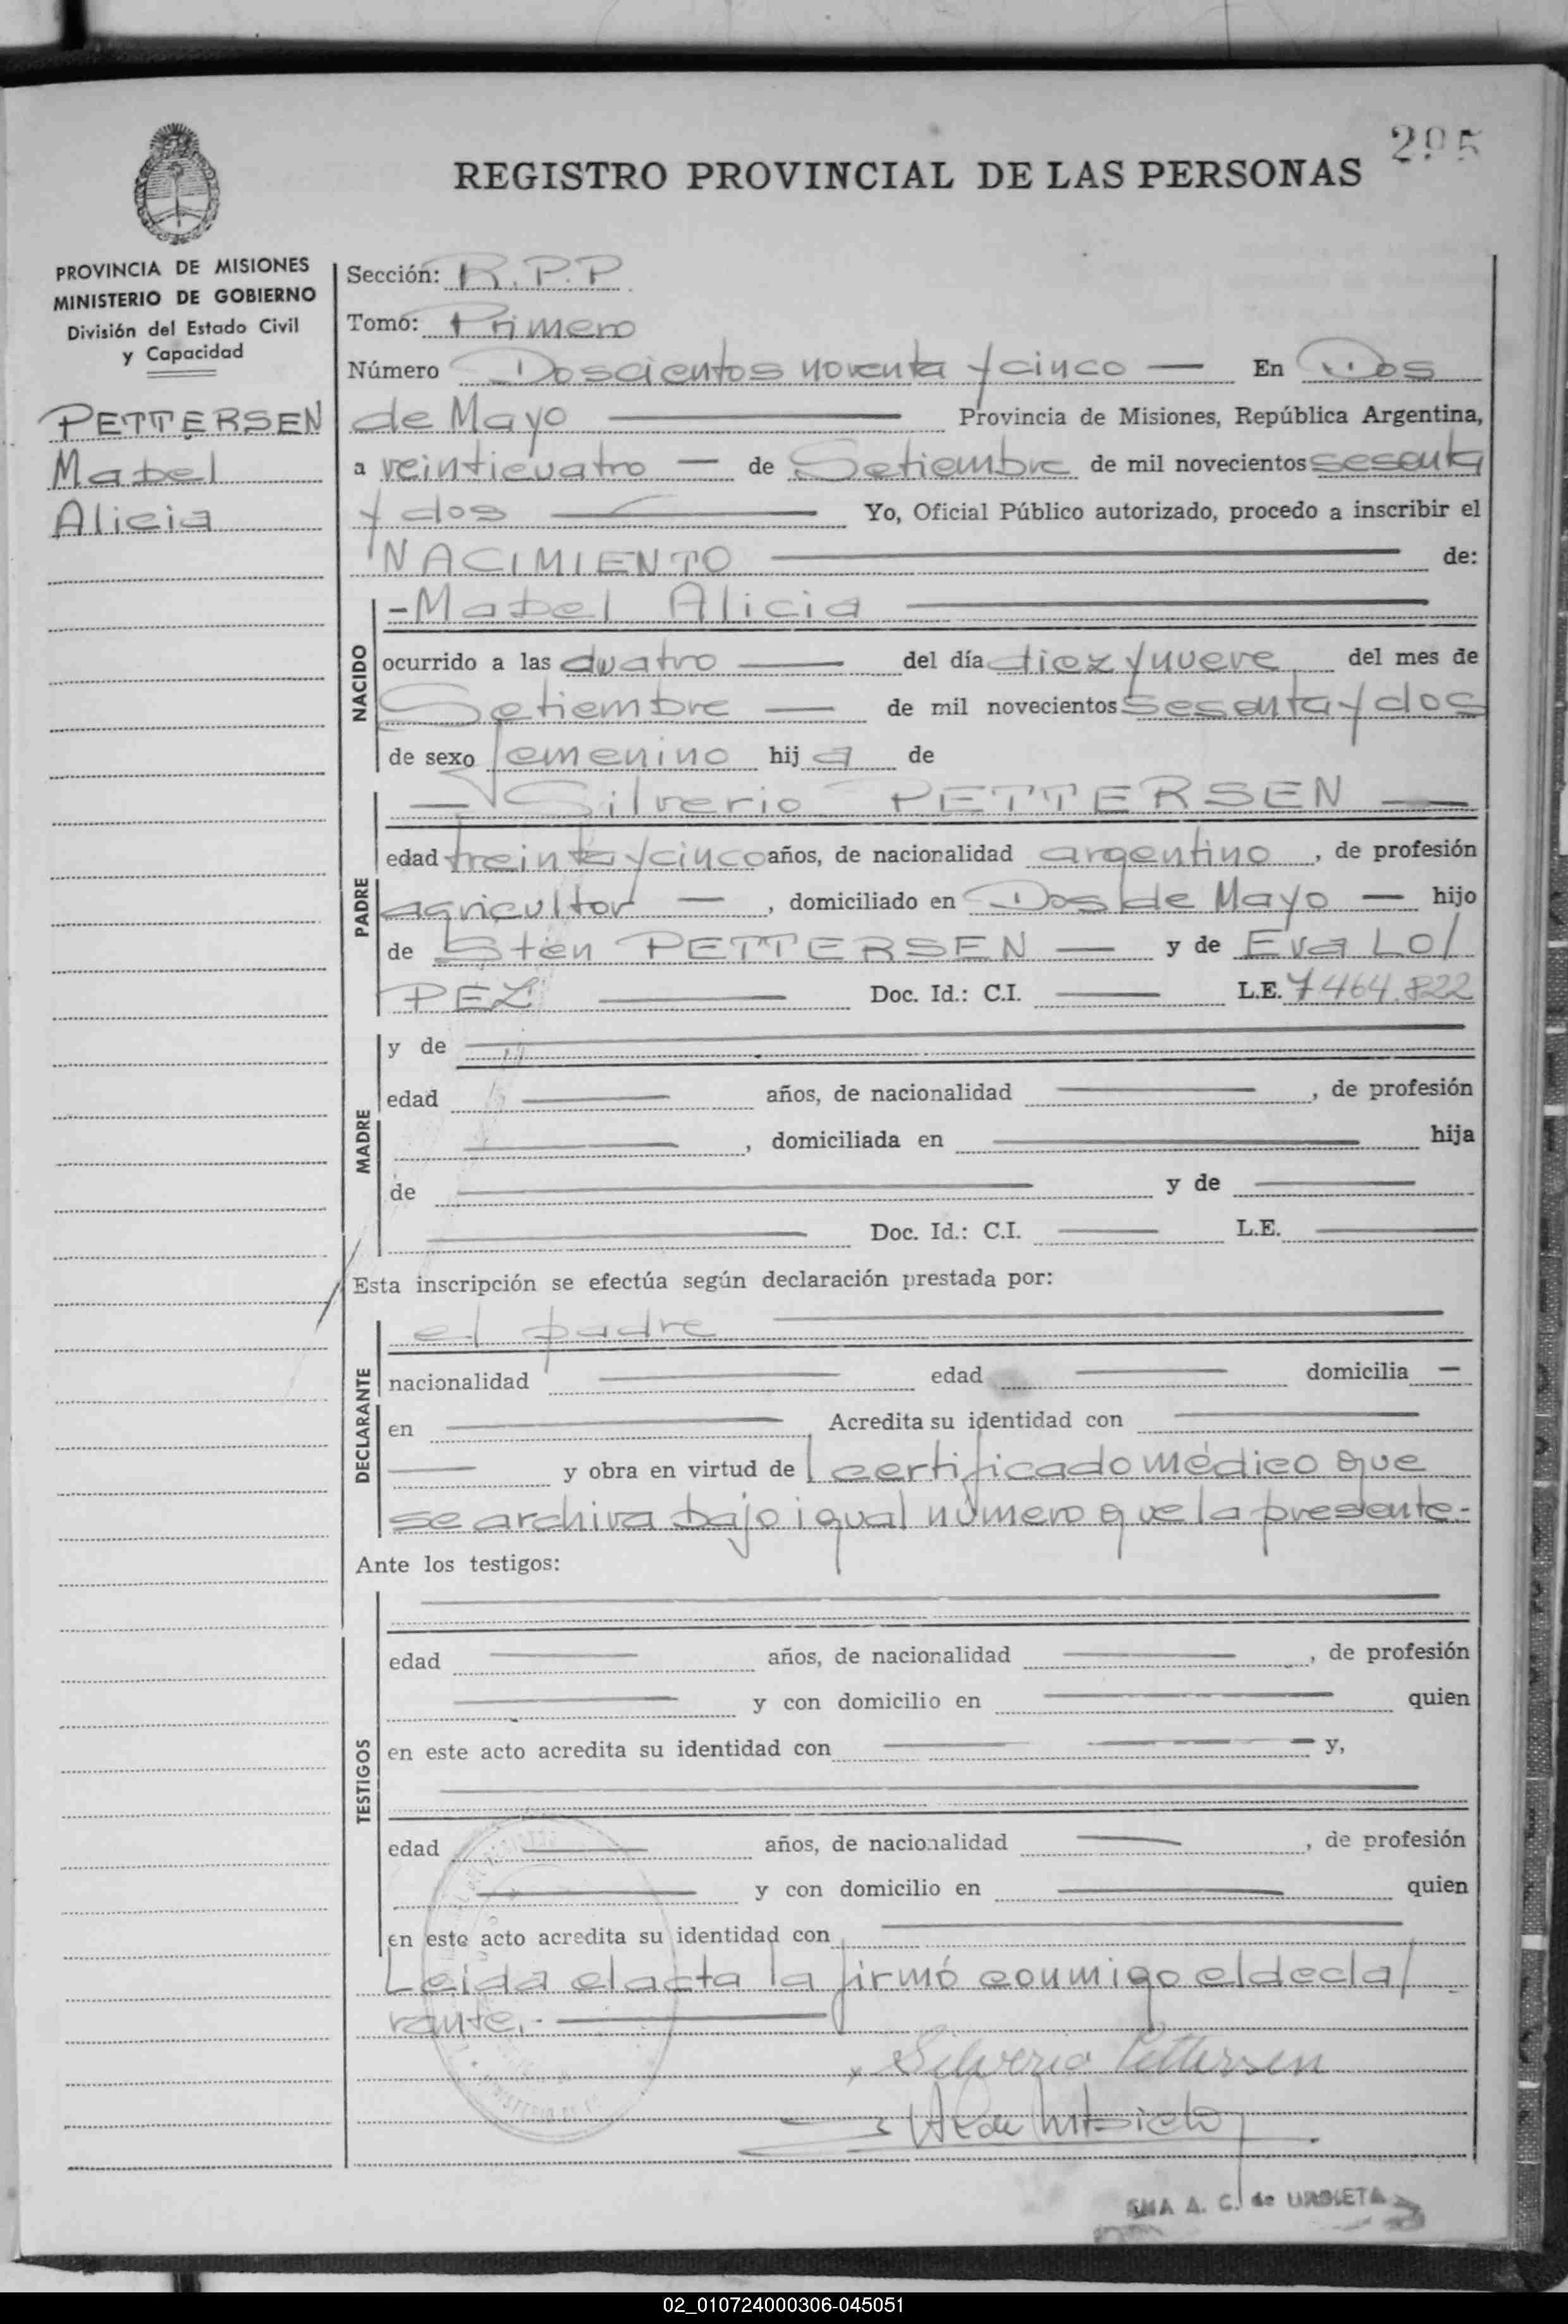 295
REGISTRO PROVINCIAL DE LAS PERSONAS
PROVINCIA DE MISIONES
MINISTERIO DE GOBIERNO
División del Estado Civil
y Capacidad
PETTERSEN
Mabel
Alicia
Sección: R.P.P.
Tomo: Primero
Número Doscientos noventa y cinco — En Dos
de Mayo — Provincia de Misiones, República Argentina,
a veinticuatro — de Setiembre de mil novecientos sesenta
y dos — Yo, Oficial Público autorizado, procedo a inscribir el
NACIMIENTO — de:
NACIDO
- Mabel Alicia —
ocurrido a las cuatro — del día diez y nueve del mes de
Setiembre — de mil novecientos sesenta y dos
de sexo femenino hij a de
PADRE
— Silverio PETTERSEN —
edad treinta y cinco años, de nacionalidad argentino, de profesión
agricultor —, domiciliado en Dos de Mayo — hijo
de Sten PETTERSEN — y de Eva LO/
PEZ — Doc. Id.: C.I. — L.E. 7464.822
MADRE
y de —
edad — años, de nacionalidad —, de profesión
—, domiciliada en — hija
de — y de —
— Doc. Id.: C.I. — L.E. —
Esta inscripción se efectúa según declaración prestada por:
DECLARANTE
el padre —
nacionalidad — edad — domicilia —
en — Acredita su identidad con —
— y obra en virtud de certificado médico que
se archiva bajo igual número que la presente.-
Ante los testigos:
TESTIGOS
—
edad — años, de nacionalidad —, de profesión
— y con domicilio en — quien
en este acto acredita su identidad con — y,
—
edad — años, de nacionalidad —, de profesión
— y con domicilio en — quien
en este acto acredita su identidad con —
Leida el acta la firmó conmigo el decla/
rante.- —
Silverio Pettersen
A. C. de URDIETA
02_010724000306-045051